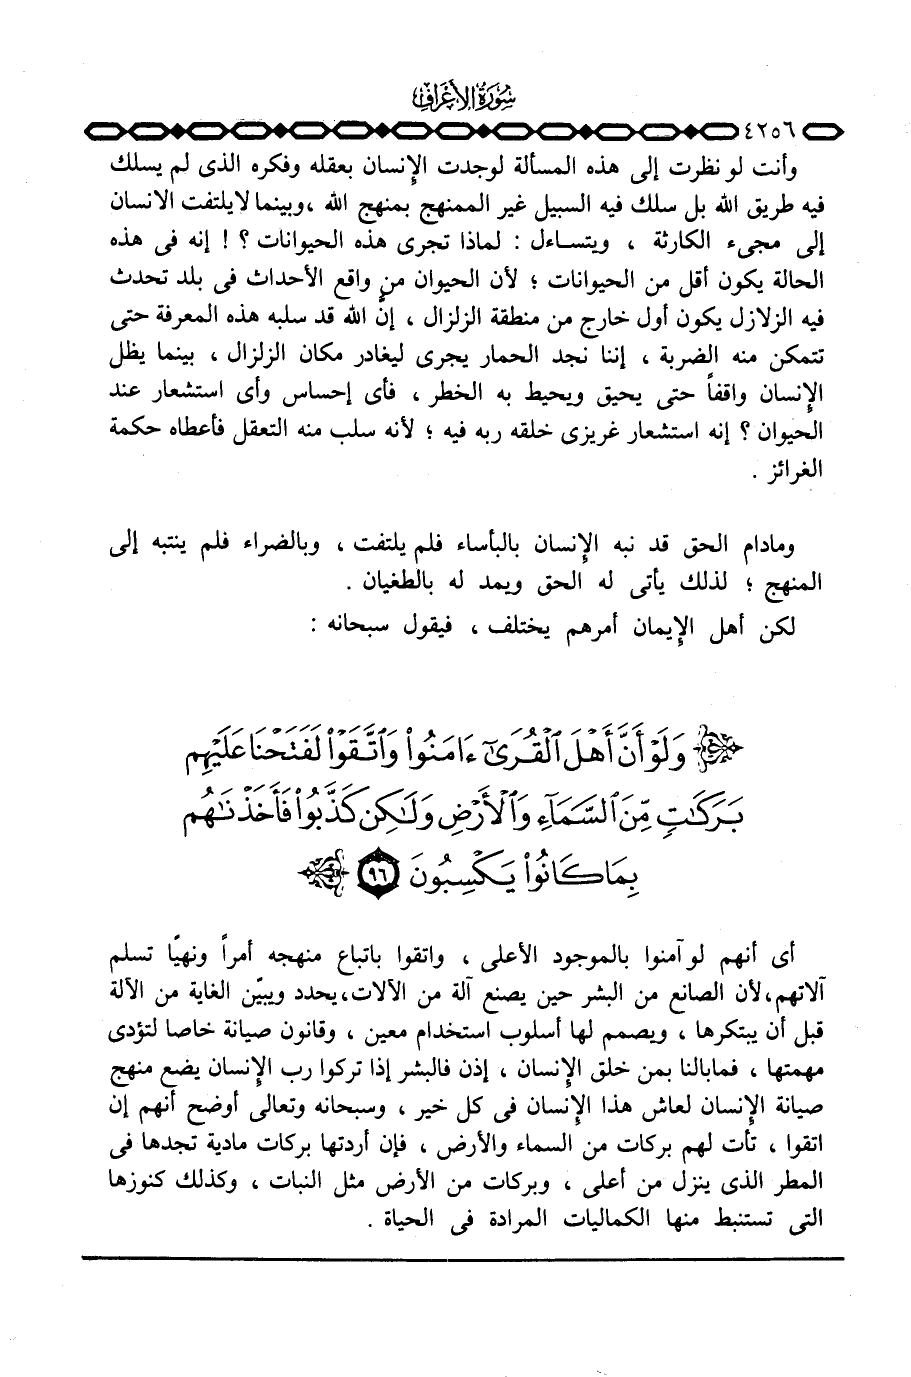 سورة الأعراف
٤٢٥٦
وأنت لو نظرت إلى هذه المسألة لوجدت الإنسان بعقله وفكره الذى لم يسلك
فيه طريق الله بل سلك فيه السبيل غير الممنهج بمنهج الله ،وبينما لايلتفت الانسان
إلى مجىء الكارثة ، ويتساءل : لماذا تجرى هذه الحيوانات ؟ ! إنه فى هذه
الحالة يكون أقل من الحيوانات ؛ لأن الحيوان من واقع الأحداث فى بلد تحدث
فيه الزلازل يكون أول خارج من منطقة الزلزال ، إنَّ الله قد سلبه هذه المعرفة حتى
تتمكن منه الضربة ، إننا نجد الحمار يجرى ليغادر مكان الزلزال ، بينما يظل
الإنسان واقفاً حتى يحيق ويحيط به الخطر ، فأى إحساس وأى استشعار عند
الحيوان ؟ إنه استشعار غريزى خلقه ربه فيه ؛ لأنه سلب منه التعقل فأعطاه حكمة
الغرائز .
ومادام الحق قد نبه الإنسان بالبأساء فلم يلتفت ، وبالضراء فلم ينتبه إلى
المنهج ؛ لذلك يأتى له الحق ويمد له بالطغيان .
لكن أهل الإيمان أمرهم يختلف ، فيقول سبحانه :
وَلَوْ أَنَّ أَهْلَ ٱلْقُرَىٰٓ ءَامَنُوا۟ وَٱتَّقَوْا۟ لَفَتَحْنَا عَلَيْهِم
بَرَكَٰتٍ مِّنَ ٱلسَّمَآءِ وَٱلْأَرْضِ وَلَٰكِن كَذَّبُوا۟ فَأَخَذْنَٰهُم
بِمَا كَانُوا۟ يَكْسِبُونَ ٩٦
أى أنهم لو آمنوا بالموجود الأعلى ، واتقوا باتباع منهجه أمراً ونهيًا تسلم
آلاتهم،لأن الصانع من البشر حين يصنع آلة من الآلات،يحدد ويبيّن الغاية من الآلة
قبل أن يبتكرها ، ويصمم لها أسلوب استخدام معين ، وقانون صيانة خاصا لتؤدى
مهمتها ، فمابالنا بمن خلق الإنسان ، إذن فالبشر إذا تركوا رب الإنسان يضع منهج
صيانة الإنسان لعاش هذا الإنسان فى كل خير ، وسبحانه وتعالى أوضح أنهم إن
اتقوا ، تأت لهم بركات من السماء والأرض ، فإن أردتها بركات مادية تجدها فى
المطر الذى ينزل من أعلى ، وبركات من الأرض مثل النبات ، وكذلك كنوزها
التى تستنبط منها الكماليات المرادة فى الحياة .